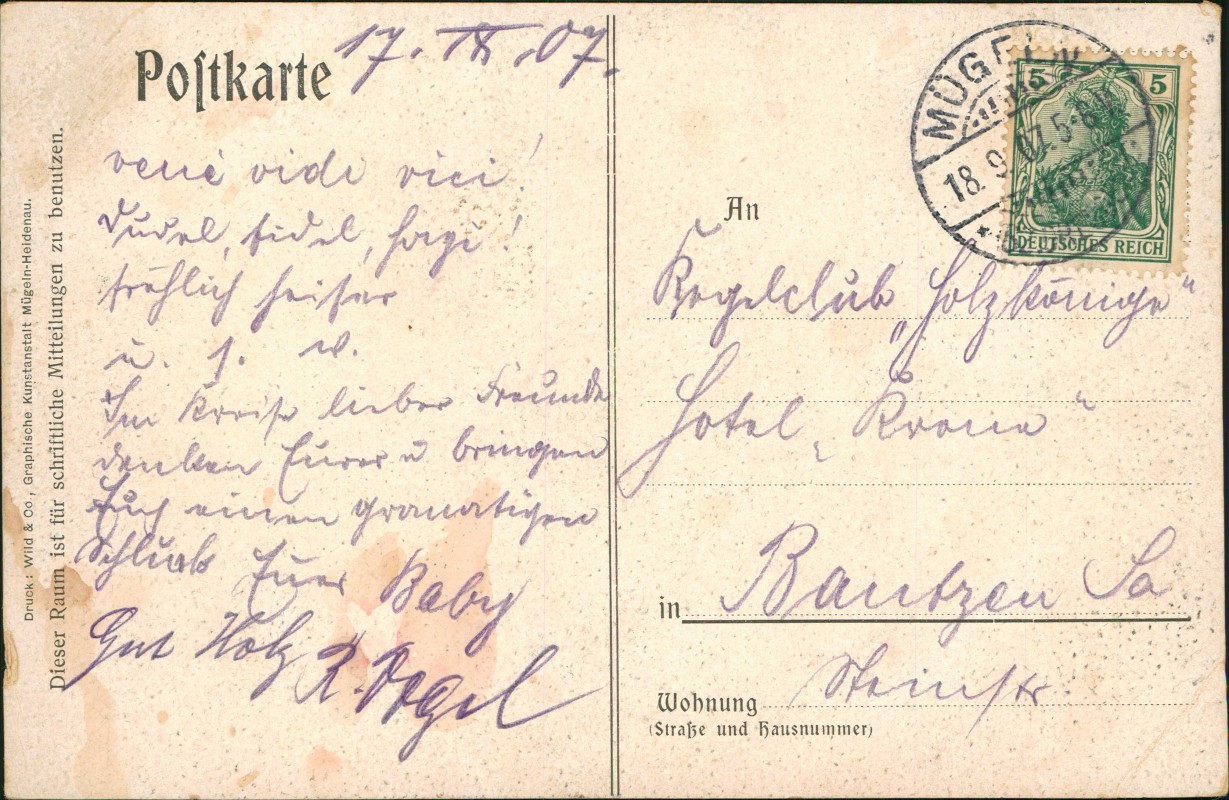 Postkarte
17. IX. 07.
veni vidi vici!
Dudel, fidel, hopp!
fröhlich heißer
u. s. w.
Im Kreise lieber Freunde
denken Eurer u bringen
Euch einen granatigen
Schluck Euer Baby
Gut Holz
R. Vogel
Druck: Wild & Co, Graphische Kunstanstalt Mügeln-Heidenau.
Dieser Raum ist für schriftliche Mitteilungen zu benutzen.
MÜGELN
18. 9. 07. 5-6
5 5
DEUTSCHES REICH
An
Kegelclub „Holzkönige“
Hotel „Krone“
in Bautzen Sa
Wohnung Steinstr.
(Straße und Hausnummer)